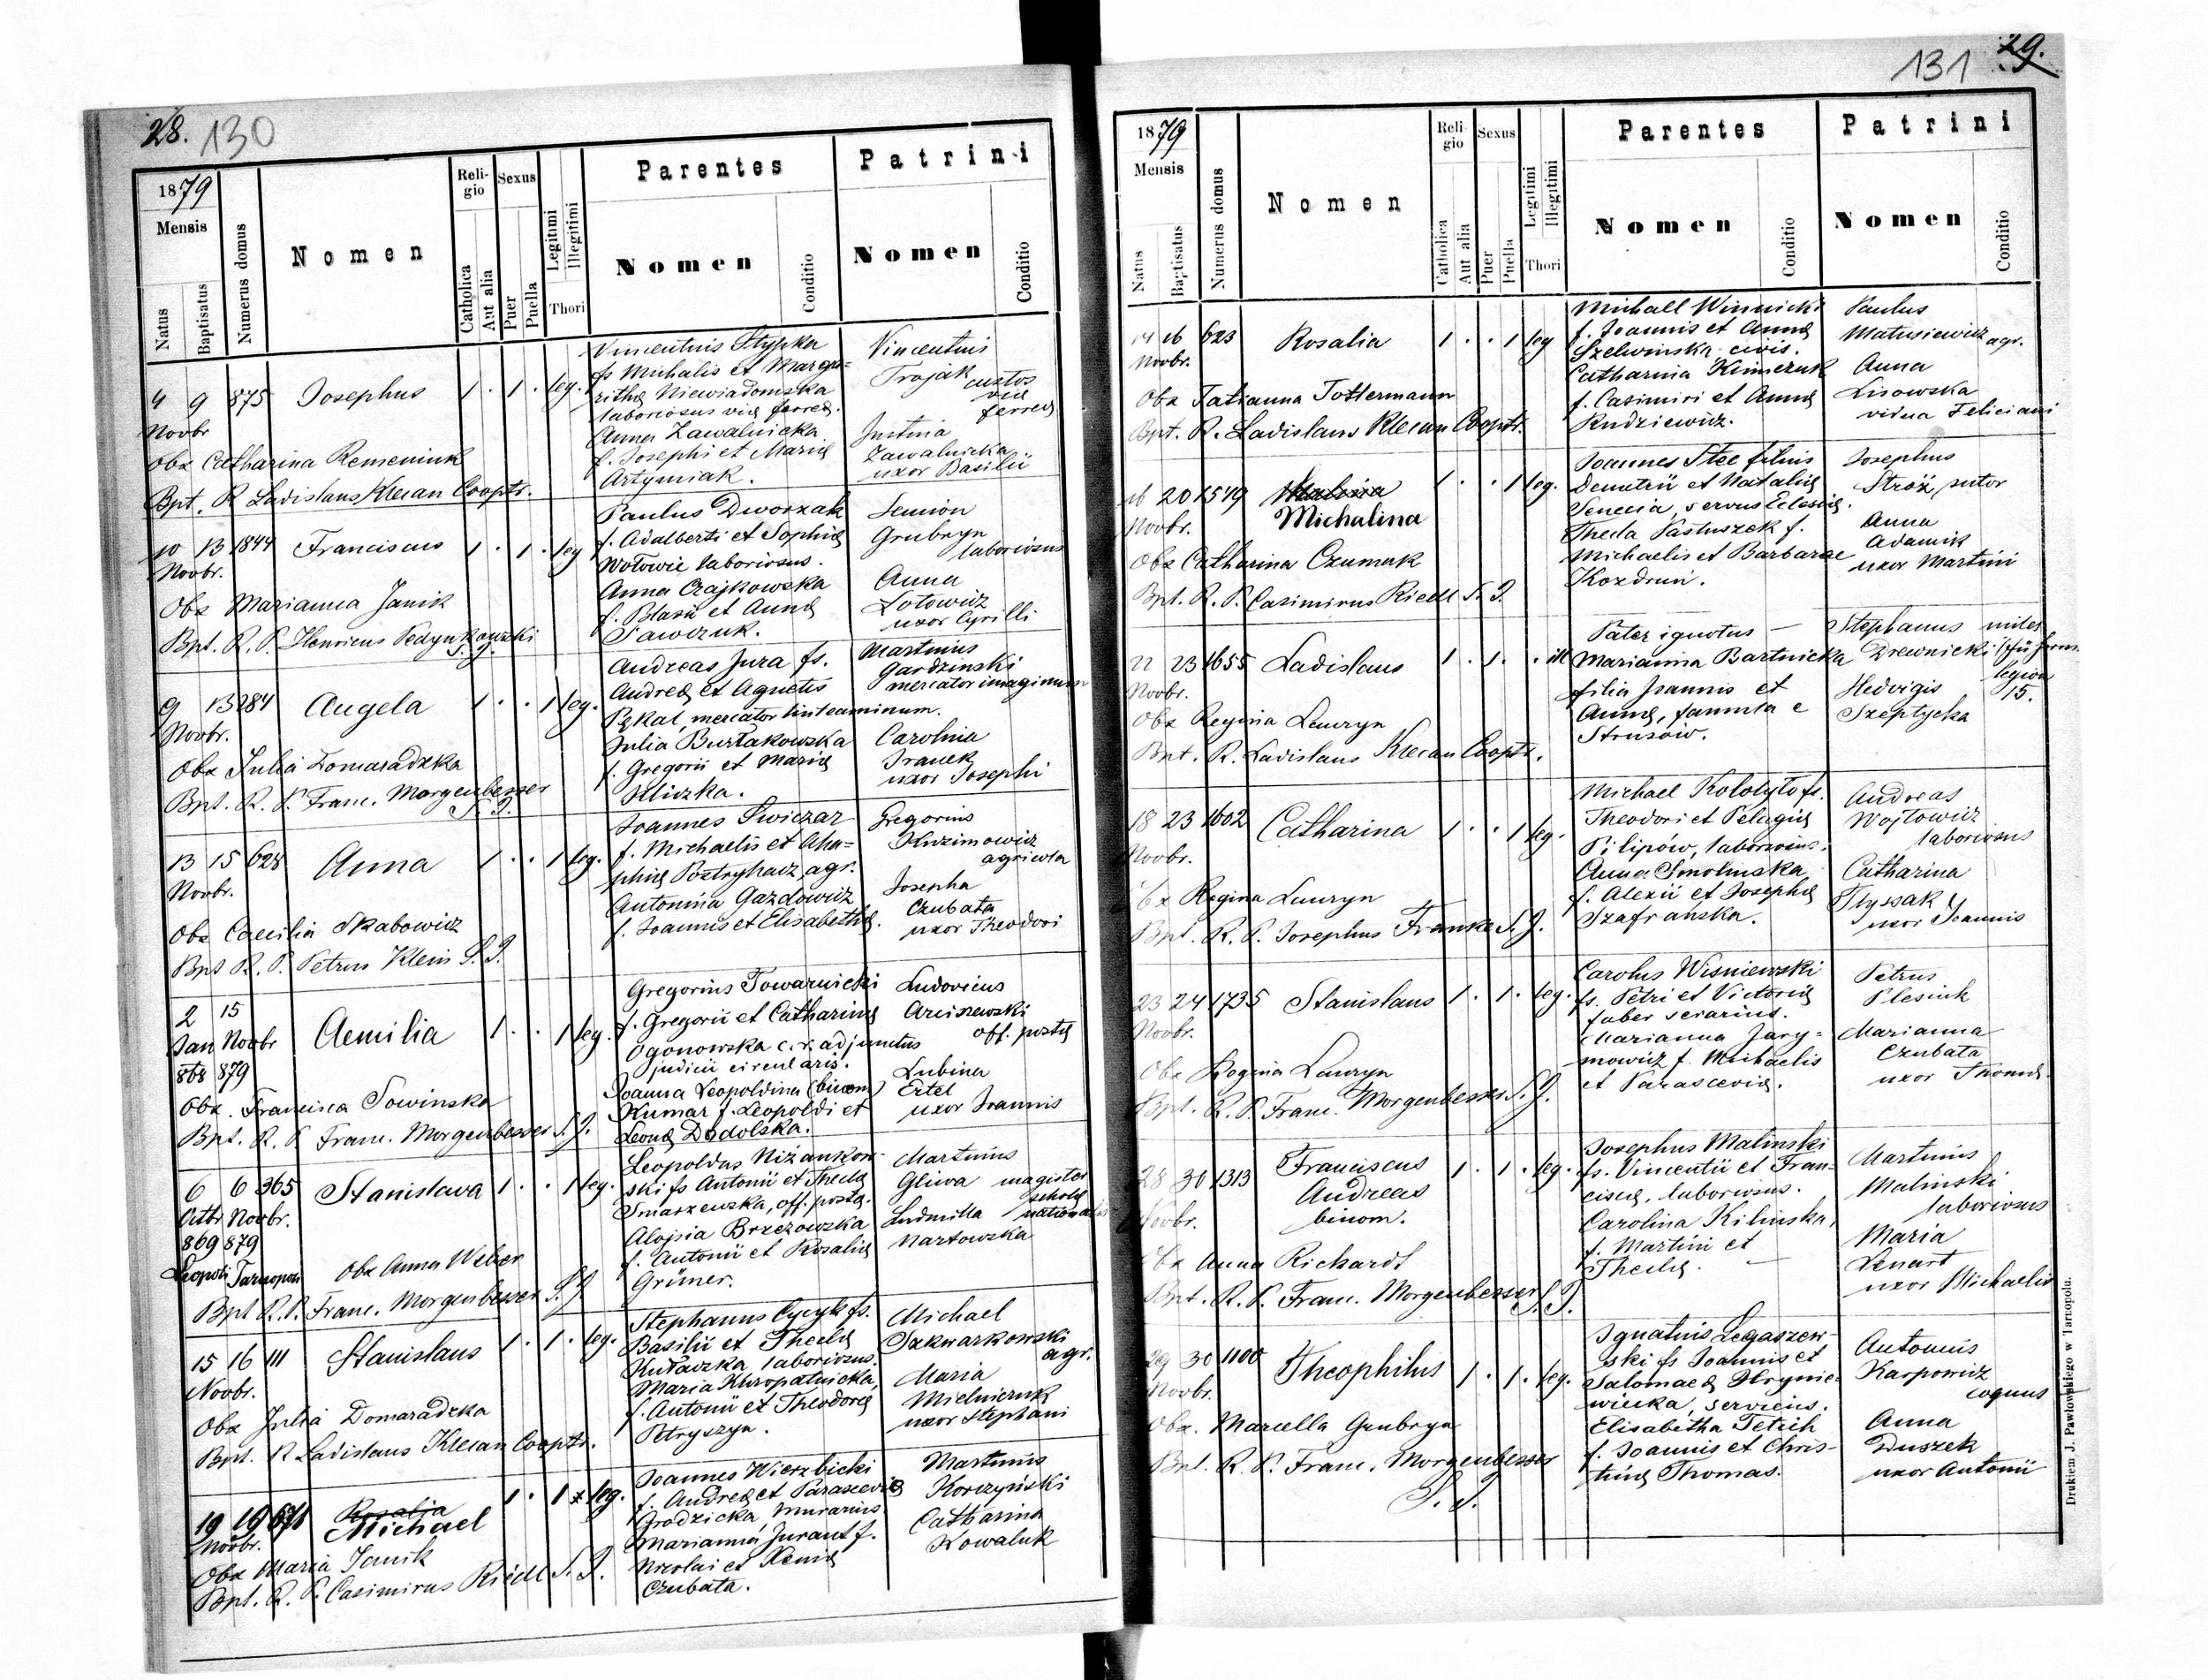 28. 130
1879
Mensis
Natus
Baptisatus
Numerus domus
Nomen
Religio
Catholica
Aut alia
Sexus
Puer
Puella
Legitimi
Illegitimi
Thori
Parentes
Nomen
Conditio
Patrini
Nomen
Conditio
4 9 875 Josephus 1 . 1 . leg.
Novbr
Obx Catharina Remeniuk
Bpt. R Ladislaus Klecan Cooptr.
Vincentius Stypka
fs Michalis et Marga-
ritha Niewiadomska
laboriosus vię ferreę.
Anna Zawalnicka
f. Josephi et Marię
Artymiak.
Vincentius
Trojak custos
vię
ferreę
Justina
Zawalnicka
uxor Basilii
10 13 1844 Franciscus 1 . 1 . leg
Novbr.
Obx Marianna Janik
Bpt. R. P. Henricus Pedynkowski
S. J.
Paulus Dworzak
f. Adalberti et Sophię
Wołowic laboriosus.
Anna Czajkowska
f. Blasii et Annę
Sawczuk.
Semion
Grubryn
laboriosus
Anna
Lotowicz
uxor Cyrilli
9 13 284 Angela 1 . . 1 leg.
Novbr.
Obx Julia Domaradzka
Bpt. R. P. Franc. Morgenbesser
S. J.
Andreas Jura fs.
Andreę et Agnetis
Pękal, mercator linteaminum.
Julia Burłakowska
f. Gregorii et Marię
Kliczka.
Martinus
Gardzinski
mercator imaginum
Carolina
Franek
uxor Josephi
13 15 628 Anna 1 . . 1 leg.
Novbr.
Obx Caecilia Skabowicz
Bpt R. P. Petrus Klein S. J.
Joannes Swiczar
f. Michaelis et Aha-
phię Postryhacz, agr.
Antonina Gazdowicz
f. Joannis et Elisabethę.
Gregorius
Kuzimowicz
agricola
Josepha
Czubata
uxor Theodori
2 15
Jan Novbr Aemilia 1 . . 1 leg.
868 879
Obx. Francisca Sowinska
Bpt. R. P Franc. Morgenbesser S. J.
Gregorius Towarnicki
f. Gregorii et Catharinę
Ogonowska c. r. adjunctus
judicii circularis.
Joanna Leopoldina (binom)
Kumar f. Leopoldi et
Leonę Dodolska.
Ludovicus
Arciszewski
off. postę
Lubina
Ertel
uxor Joannis
6 6 365 Stanisława 1 . . 1 leg.
Octbr Novbr.
869 879
Leopoli Tarnopoli
Obx Anna Weber
Bpt R. P. Franc. Morgenbesser S. J
Leopoldus Niżankow-
ski fs Antonii et Theclę
Smarzewska, off. posta.
Alojsia Brzezowska
f. Antonii et Rosalię
Grüner.
Martinus
Gliwa magister
scholę
Ludmilla nationalis
Nartowska
15 16 111 Stanislaus 1 . 1 . leg.
Novbr.
Obx Julia Domaradzka
Bpt. R Ladislaus Klecan Cooptr.
Stephanus Cycyk fs.
Basilii et Theclę
Kułaczka laboriosus.
Maria Kuropatnicka,
f. Antonii et Theodorę
Petryszyn.
Michael
Szkwarkowski
agr.
Maria
Mielniczuk
uxor Stephani
19 19 671 Rosalia
Michael 1 . 1 x leg.
Novbr.
Obx Maria Janik
Bpt. R. P. Casimirus Riedl S. J.
Joannes Wierzbicki
f. Andreę et Parascevię
Grodzicka, murarius.
Marianna Jurant f.
Nicolai et Xenię
Czubata.
Martinus
Korczyński
Catharina
Kowaluk
131 29.
1879
Mensis
Natus
Baptisatus
Numerus domus
Nomen
Religio
Catholica
Aut alia
Sexus
Puer
Puella
Legitimi
Illegitimi
Thori
Parentes
Nomen
Conditio
Patrini
Nomen
Conditio
14 16 623 Rosalia 1 . . 1 leg
Novbr.
Obx Tatianna Tottermann
Bpt. R. Ladislaus Klecan Cooptr.
Michall Winnicki
f. Joannis et Annę
Szelwinska civis.
Catharina Kimczuk
f. Casimiri et Annę
Rudziewicz.
Paulus
Matusiewicz agr.
Anna
Lisowska
vidua Feliciani
16 20 1549 Michalina 1 . . 1 leg.
Novbr.
Obx Catharina Czumak
Bpt. R. P. Casimirus Riedl S. J.
Joannes Stec filius
Demetrii et Natalię
Senecia, servus Eclesię.
Thecla Pastuszek f.
Michaelis et Barbarae
Kozdruń.
Josephus
Stróż, sutor
Anna
Adamik
uxor Martini
22 23 1655 Ladislaus 1 . 1 . . ill
Novbr.
Obx Regina Lauryn
Bpt. R. Ladislaus Klecan Cooptr.
Pater ignotus —
Marianna Bartnicka
filia Joannis et
Annę, famula e
Strusów.
Stephanus miles
Drewnicki
legion
15.
Hedvigis
Szeptycka
18 23 1602 Catharina 1 . . 1 leg.
Novbr.
Obx Regina Lauryn
Bpt. R. P. Josephus Franke S. J.
Michael Kołotyło fs.
Theodori et Pelagię
Pilipów, laboriosus.
Anna Smolinska
f. Alexii et Josephę
Szafranska.
Andreas
Wojtowicz
laboriosus
Catharina
Tyssak
uxor Joannis
23 24 1735 Stanislaus 1 . 1 . leg.
Novbr.
Obx Regina Lauryn
Bpt. R. P. Franc. Morgenbesser S. J.
Carolus Wisniewski
fs. Petri et Victorię
faber serarius.
Marianna Jary-
mowicz f. Michaelis
et Parascevię.
Petrus
Plesiuk
Marianna
Czubata
uxor Thomę.
28 30 1313 Franciscus 1 . 1 . leg.
Novbr. Andreas
binom.
Obx Anna Richardt
Bpt. R. P. Franc. Morgenbesser S. J.
Josephus Malinski
fs. Vincentii et Fran-
ciscę, laboriosus.
Carolina Kilinska,
f. Martini et
Theclę. —
Martinus
Malinski
laboriosus
Maria
Lenart
uxor Michaelis
29 30 1100 Theophilus 1 . 1 . leg.
Novbr.
Obx. Marcella Grubryn
Bpt. R. P. Franc. Morgenbesser
S. J.
Ignatius Legaszew-
ski fs Joannis et
Salomeaę Hrynie-
wicka, serviens.
Elisabetha Tetich
f. Joannis et Chris-
tinę Thomas.
Antonius
Karpowicz
coquus
Anna
Duszek
uxor Antonii
Drukiem J. Pawłowskiego w Tarnopolu.